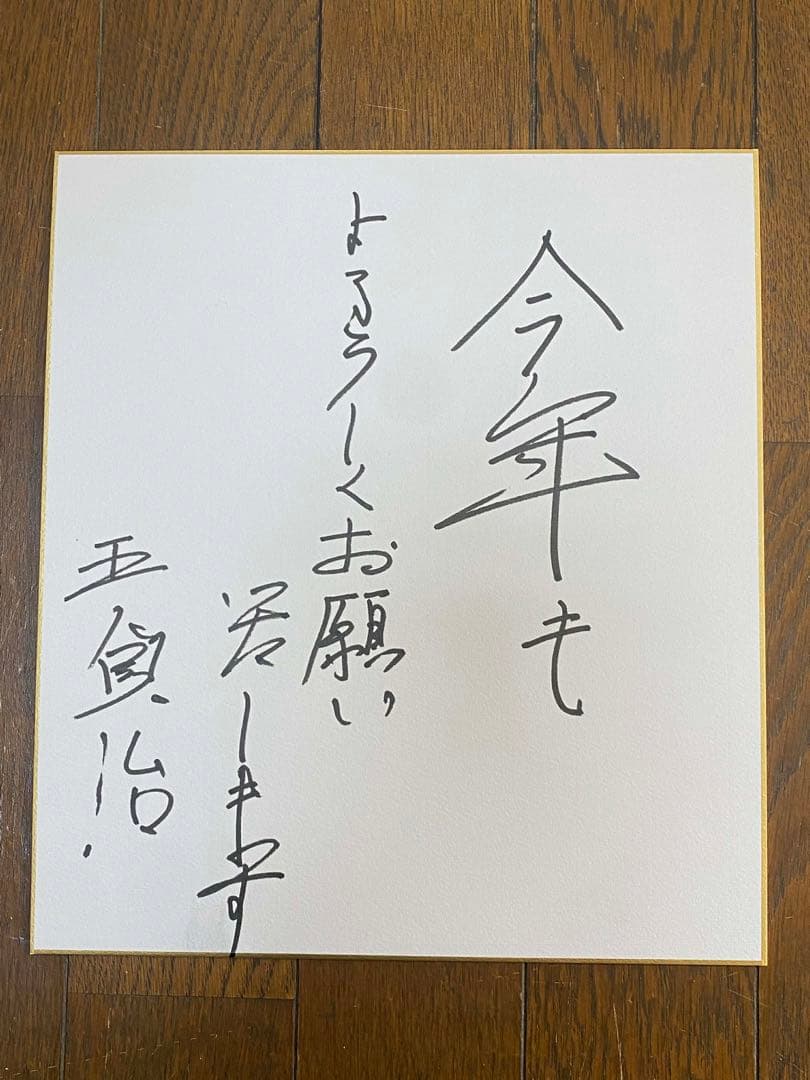 今年も
よろしくお願い
若します
王貞治